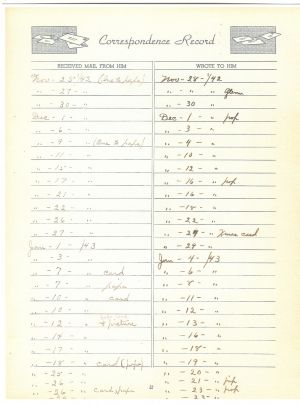 Correspondence Record
RECEIVED MAIL FROM HIM
WROTE TO HIM
Nov - 28 '42 (one to papa)
" - 29 - "
" - 30 - "
Dec - 1 - "
" - 6 - "
" - 9 - " (one to papa)
" - 11 - "
" - 15 - "
" - 17 - "
" - 21 - "
" - 22 - "
" - 26 - "
" - 27 - "
Jan - 1 - '43
" - 3 - "
" - 7 - " card
" - 7 - " papa
" - 10 - " card
" - 10 - "
" - 12 - " picture
" - 14 - "
" - 17 - "
" - 18 - " card (papa)
" - 25 - "
" - 26 - "
" - 26 - " card papa
Nov - 28 - '42
" - " - " Glenn
" - 30 - "
Dec - 1 - " pop
" - 3 - "
" - 4 - "
" - 10 - "
" - 12 - "
" - 16 - " pop
" - 16 - "
" - 18 - "
" - 22 - "
" - 24 - " Xmas card
" - 29 - "
Jan - 4 - '43
" - 6 - "
" - 8 - "
" - 11 - "
" - 12 - "
" - 13 - "
" - 16 - "
" - 18 - "
" - 19 - "
" - 20 - "
" - 21 - " pop
" - 23 - " pop